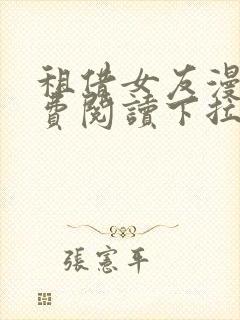 租借女友漫
費閱讀下拉
張憲平